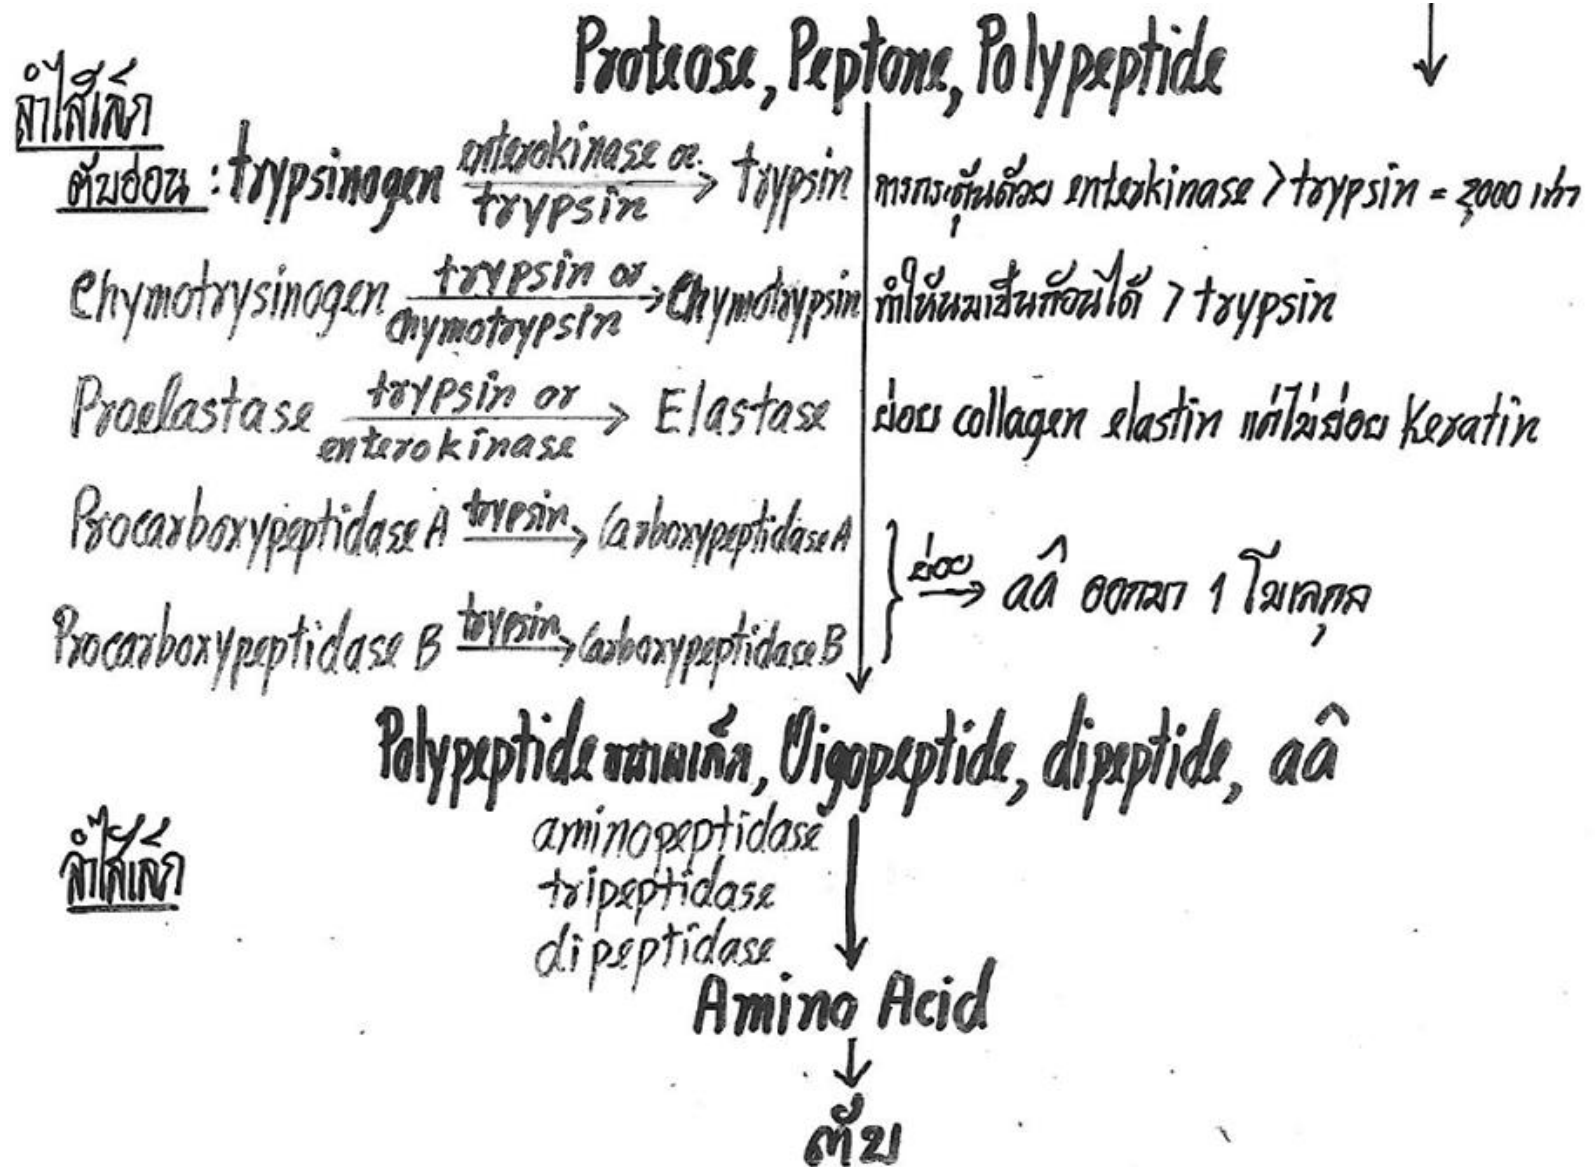 Proteose, Peptone, Polypeptide
ลำไส้เล็ก
ตับอ่อน : trypsinogen enterokinase or trypsin → trypsin การกระตุ้นด้วย enterkinase > trypsin = 2,000 เท่า
Chymotrysinogen trypsin or chymotrypsin → Chymotrypsin ทำให้นมเป็นก้อนได้ > trypsin
Proelastase trypsin or enterokinase → Elastase ย่อย collagen elastin แต่ไม่ย่อย Keratin
Procarboxypeptidase A trypsin → Carboxypeptidase A
Procarboxypeptidase B trypsin → Carboxypeptidase B
} ย่อย → aâ ออกมา 1 โมเลกุล
Polypeptide ขนาดเล็ก, Oigopeptide, dipeptide, aâ
ลำไส้เล็ก
aminopeptidase
tripeptidase
dipeptidase
Amino Acid
ตับ